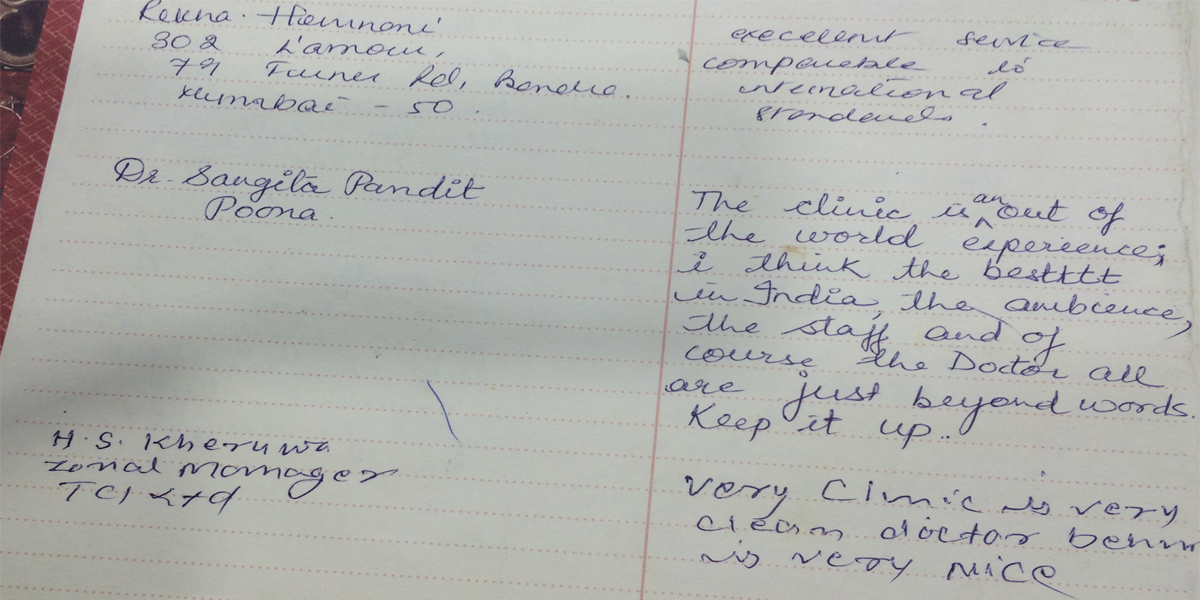 Rekha. Hemnani
302 L'amour,
79 Turner Rd, Bandra.
Mumabai - 50.
execelent service
comparable to
international
standards.
Dr. Sangita Pandit
Poona.
The clinic is an out of
the world experience;
i think the besttttt
in India, the ambience,
the staff and of
course the Doctor all
are just beyond words.
Keep it up.
H. S. Kheruwa
Zonal Manager
TCI Ltd
very Clinic is very
clean doctor
is very nice